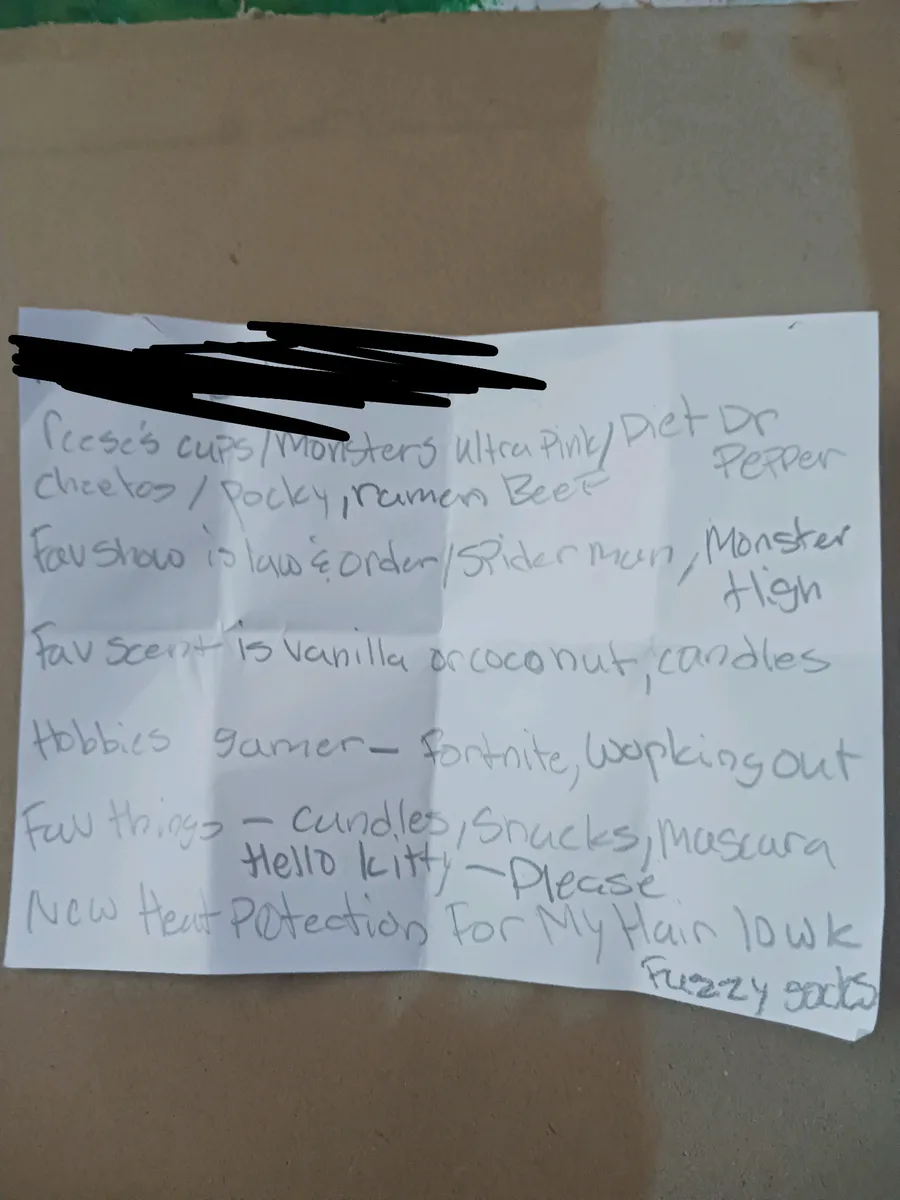 reese's cups/Monsters ultra Pink/Diet Dr Pepper
cheetos / Pocky, ramen Beef
Fav show is law & order/Spider man, Monster High
Fav scent is vanilla or coconut, candles
Hobbies gamer - fortnite, working out
Fav things - candles, snacks, mascara
Hello kitty - Please
New Heat Protection For My Hair lowk
Fuzzy socks